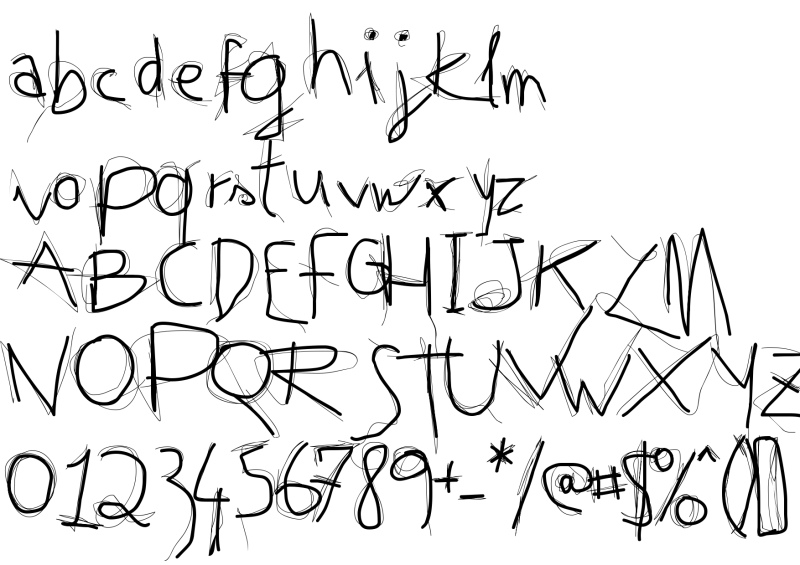 abcdefghijklm
nopqrstuvwxyz
ABCDEFGHIJKLM
NOPQRSTUVWXYZ
0123456789+-*/@#$%^()